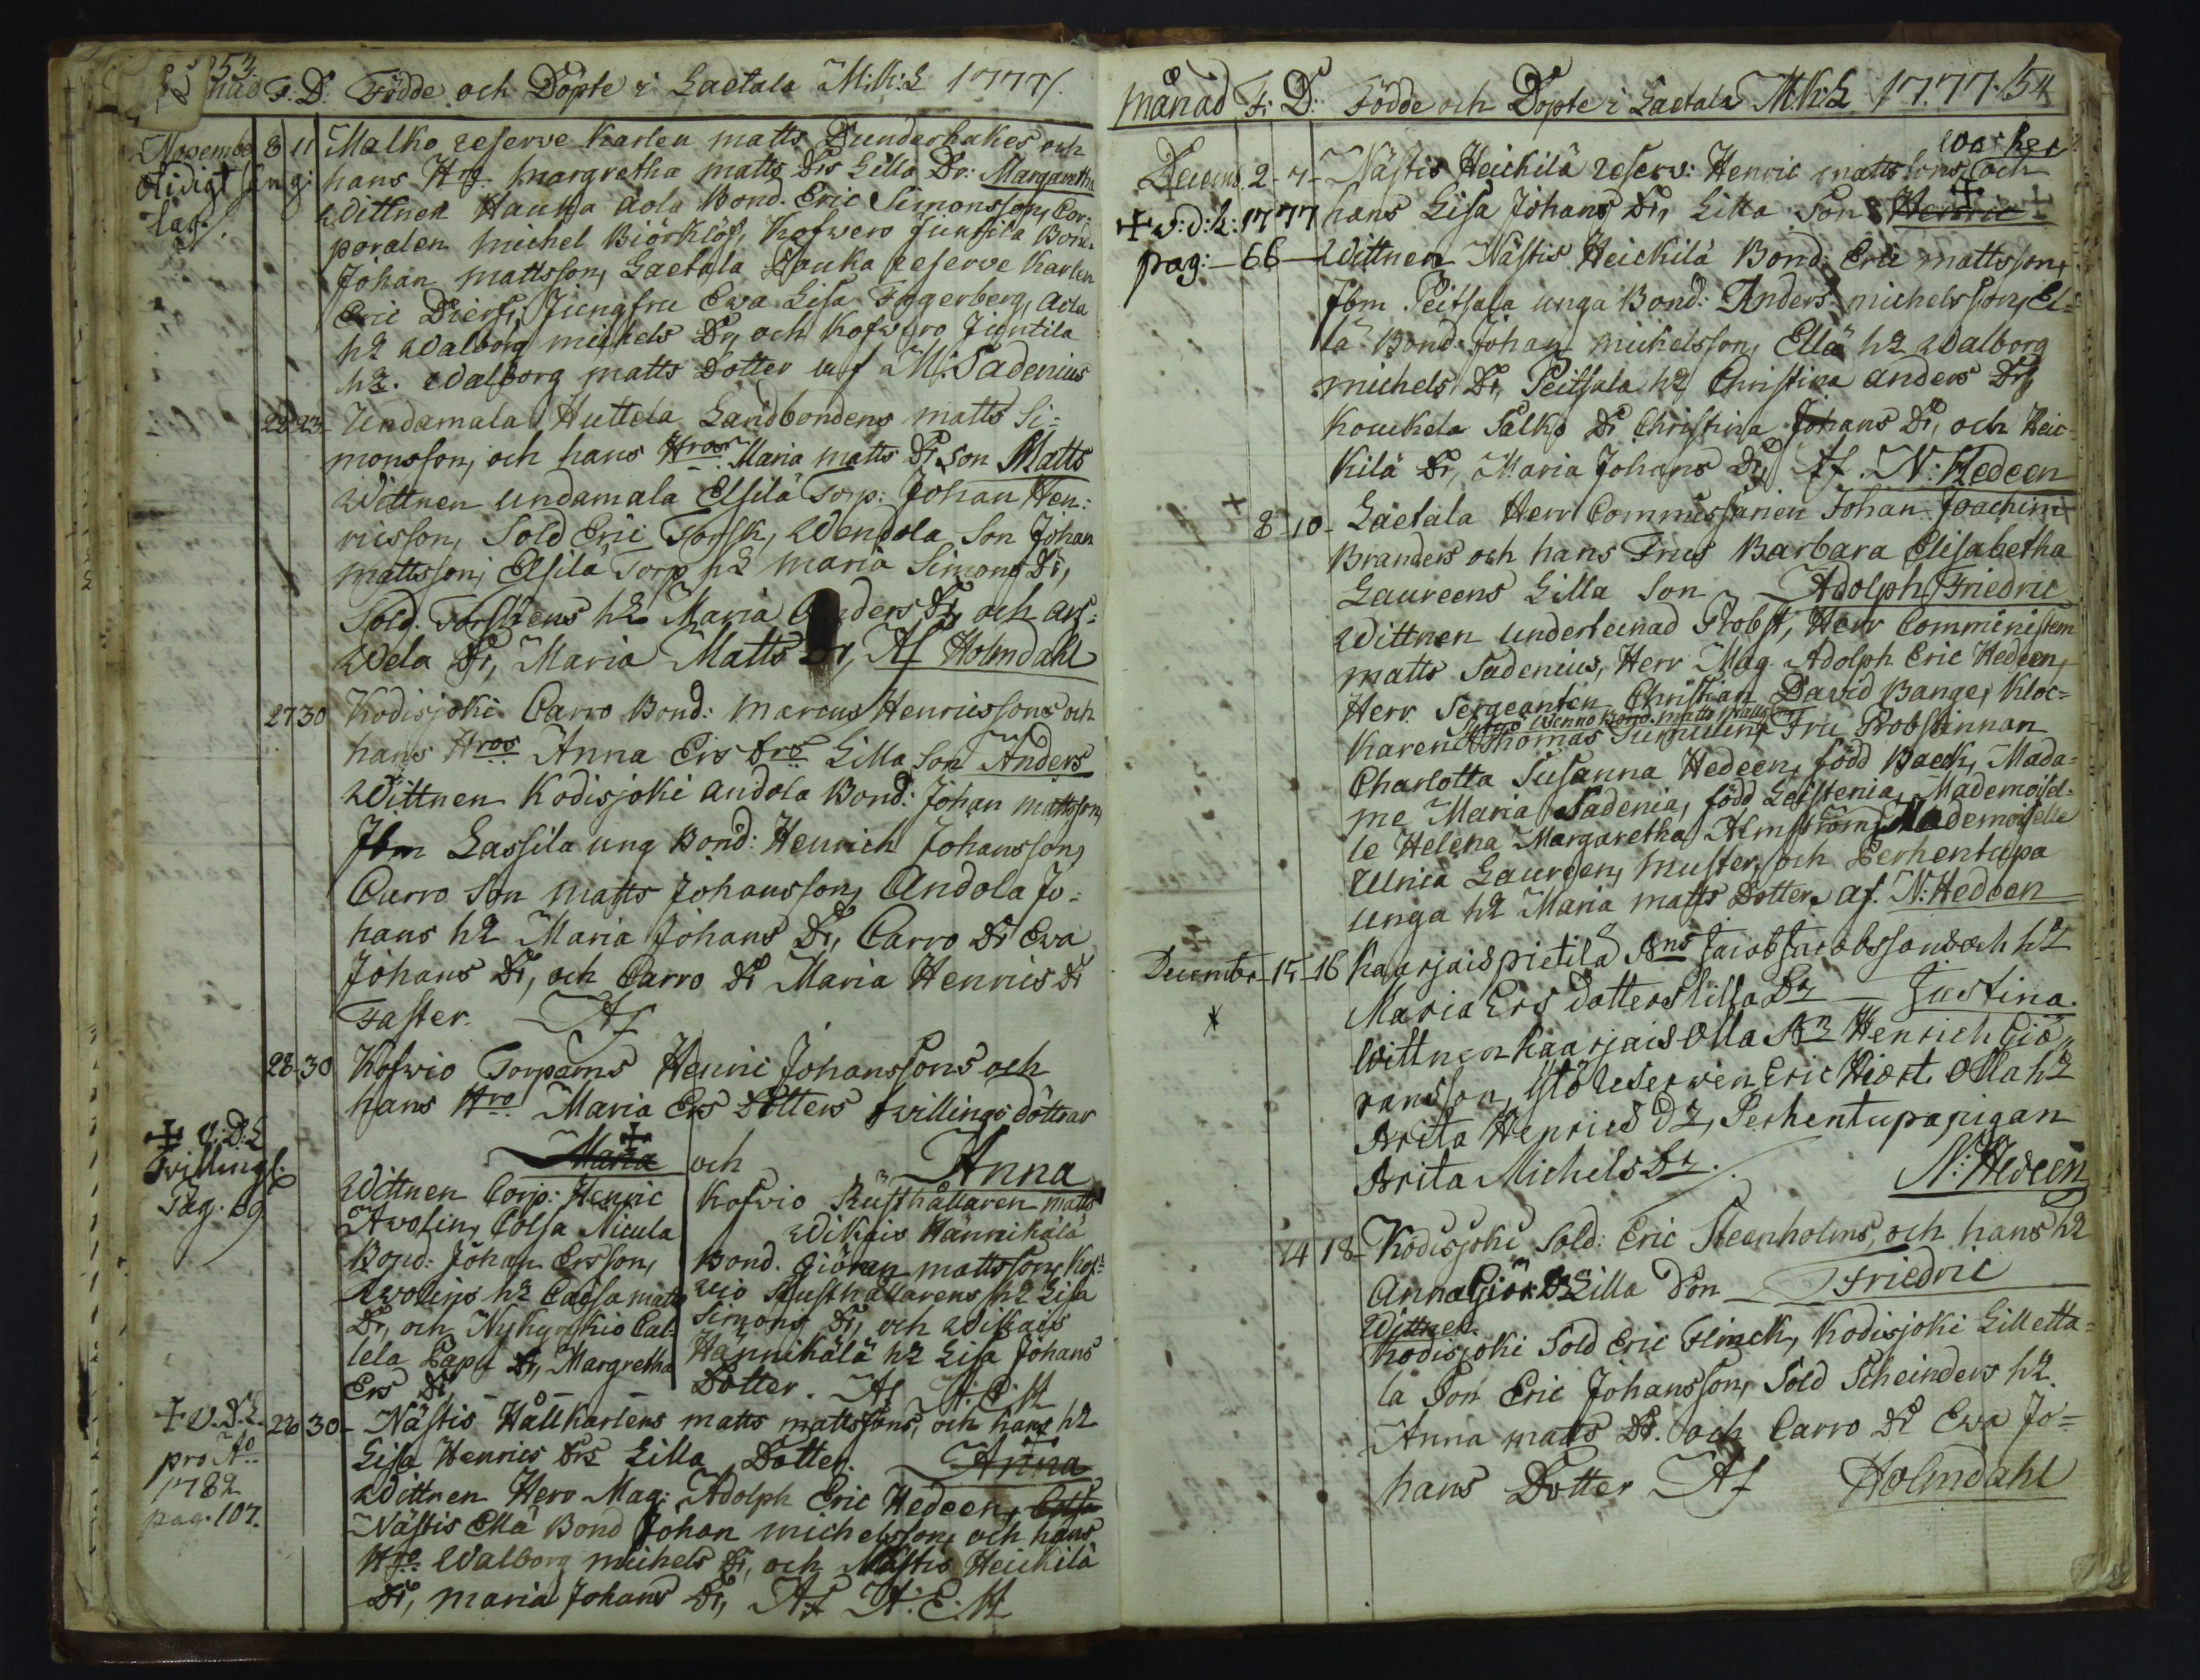 53.
nad F: D: Födde och Döpte i Laetala M:K:L 1777.
November 8 11 Malko reserve karlen matts Dunderhakes och
hans Hro. margretha matts Drs Lilla Dr: Margaretha
Wittnen Hauka aola Bond. Eric Simonsson, Cor:
poralen michel Biörklöf, Kofwero Juntila Bond.
Johan mattsson, Laetala Hauka reserve karlen
Eric Diers, Jungfru Ewa Lisa Fogerberg, aola
h2 Walborg michels Dr, och Kofwero Juntila
h2. Walborg matts Dotter af M: Sadenius
22 23 Undamala Huttela Landbondens matts Si=
monsson, och hans Hros Maria matts Dr son Matts
Wittnen undamala Elsilä Torp: Johan Hen:
ricsson, Sold Eric Forsk, Wendola Son Johan
mattsson, Elsilä Torp h2 maria Simons Dr,
Sold. Forskens h2 Maria anders Dr, och ars:
wela Dr, Maria Matts Dr, Af Holmdahl
27 30 Kodisjoki Carro Bond: marcus Henricssons och
hans Hros Anna Ers Drs Lilla Son Anders
Wittnen Kodisjoki andola Bond: Johan mattsson,
Jbm Lassila ung Bond: Henrich Johansson,
Carro Son matts Johansson, Andola Jo=
hans h2 Maria Johans Dr, Carro Dr Ewa
Johans Dr, och Carro Dr Maria Henrics Dr
Faster. Af
28 30 Kofwio Torparns Henric Johanssons och
hans Hro Maria Ers Dotters twillings döttrar
V:D:L
Twillingl:
Pag. 69
Maria och Anna
Wittnen Corp: Henric
Awolin, Colja Nicula
Bond: Johan Ersson,
Awolins h2 Caisa matts
Dr, och Nykyrkio Cal=
lela Papu Dr, Margretha
Ers Dr,
Kofwio Rusthållaren matts
Wikais Hännikälä
Bond. Giöran mattsson, Kof=
wio Rusthållarens h2 Lisa
Simons Dr, och Wikais
Hännikälä h2 Lisa Johans
Dotter. Af A. E. H
V.D.L.
pro Ao
1782
pag. 107.
26 30 Nästis Hållkarlens matts mattssons, och hans h2
Lisa Henrics Drs Lilla Dotter. Anna
Wittnen Herr Mag: Adolph Eric Hedeen,
Nästis Ellä Bond Johan michelsson, och hans
Hro Walborg michels Dr, och Nästis Heickilä
Dr, maria Johans Dr, Af A: E. H
månad F: D: Födde och Döpte i Laetala M:K:L 1777. 54
Decemb. 2 - 4 - Nästis Heickilä reserv: Henric mattssons, och
V:D:L: 1777 hans Lisa Johans Dr, Lilla Son Henric
pag: - 66 - Wittnen Nästis Heickilä Bond: Eric mattsson,
Jbm Peitsala unga Bond: Anders michelsson, El=
lä Bond Johan michelsson, Ellä h2 Walborg
michels Dr, Peitsala h2 Christina anders Dr,
Kouckela Salko Dr Christina Johans Dr, och Heic
kilä Dr, Maria Johans Dr, Af. N: Hedeen
8 - 10 - Laetala Herr Commissarien Johan Joachim
Branders och hans Frus Barbara Elisabetha
Laureens Lilla Son Adolph Friedric
Wittnen undertecnad Probst, Herr Comministern
matts Sadenius, Herr Mag. Adolph Eric Hedeen,
Herr Sergeanten Christian David Bange, Kloc=
karen Thomas Tumulin, Fru Probstinnan
Charlotta Susanna Hedeen, född Baeck, Mada=
me Maria Sadenia, född Leistenia, Mademoisel=
le Helena Margaretha Almström, Mademoiselle
Ulrica Laureen, muster, och Perhentupa
unga h2 Maria matts Dotter, af. N: Hedeen
December 15 - 16 Kaarjais pietilä Bns Jacob Jacobssons och h2
Maria Ers dotters lilla Dr Justina.
Wittnen Kaarjais olla Bn Henrich Giö
ransson, Reserwen Eric Hiort, olla h2
Brita Henrics Dr, Perhentupa pigan
Brita Michels Dr. N: Hedeen
14 18 - Kodisjoki Sold: Eric Steenholms, och hans h2
Anna Giörs Dr Lilla Son Friedric
Wittnen
Kodisjoki Sold Eric Flinck, Kodisjoki Lilletta=
la Son Eric Johansson, Sold Scheinders h2.
Anna matts Dr. och Carro Dr Ewa Jo=
hans Dotter Af Holmdahl